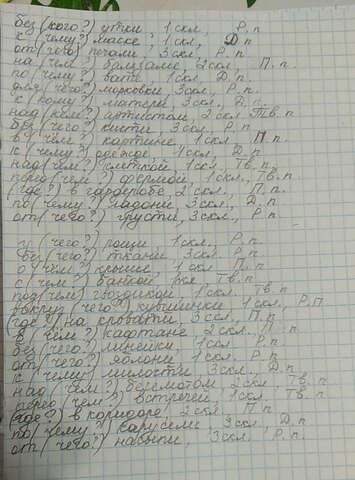 без (кого?) уточки, 1 скл., Р. п.
к (чему?) маске, 1 скл., Д. п
от (чего) печали, 3 скл., Р. п.
на (чём?) бальзаме, 2 скл., П. п.
по (чему?) вате, 1 скл., Д. п.
для (чего?) морковки, 3 скл., Р. п.
к (кому?) матери, 3 скл., Д. п.
над (кем?) артистом, 2 скл. Тв. п.
без (чего?) кисти, 3 скл., Р. п.
в (чём?) картине, 1 скл., П. п.
к (чему?) одежде, 1 скл., Д. п.
над (чем?) клеткой, 1 скл., Тв. п.
перед (чем?) фермой, 1 скл., Тв. п.
(где?) в гардеробе, 2 скл., П. п.
по (чему?) ладони, 3 скл., Д. п.
от (чего?) грусти, 3 скл., Р. п.
(чего?) рощи, 1 скл., Р. п.
без (чего?) ткани, 3 скл. Р. п.
о (чём?) крыше, 1 скл. П. п
с (чем?) банкой, 1 скл. Тв. п.
под (чем) гвоздикой, 1 скл. Тв. п
вокруг (чего?) кувшинки, 1 скл., Р. П.
(где?) на кровати, 3 скл., П. п.
в (чём?) кафтане, 2 скл., П. п.
без (чего?) линейки, 1 скл., Р. п
от (чего?) яблони, 1 скл., Р. п.
к (чему?) милости, 3 скл., Д. п
над (чем?) бегемотом, 2 скл., Тв. п.
перед (чем?) встречей, 1 скл. Тв. п
(где?) в коридоре, 2 скл., П. п.
по (чему?) карусели, 3 скл., Д. п
от (чего?) насыпи, 3 скл., Р. п.